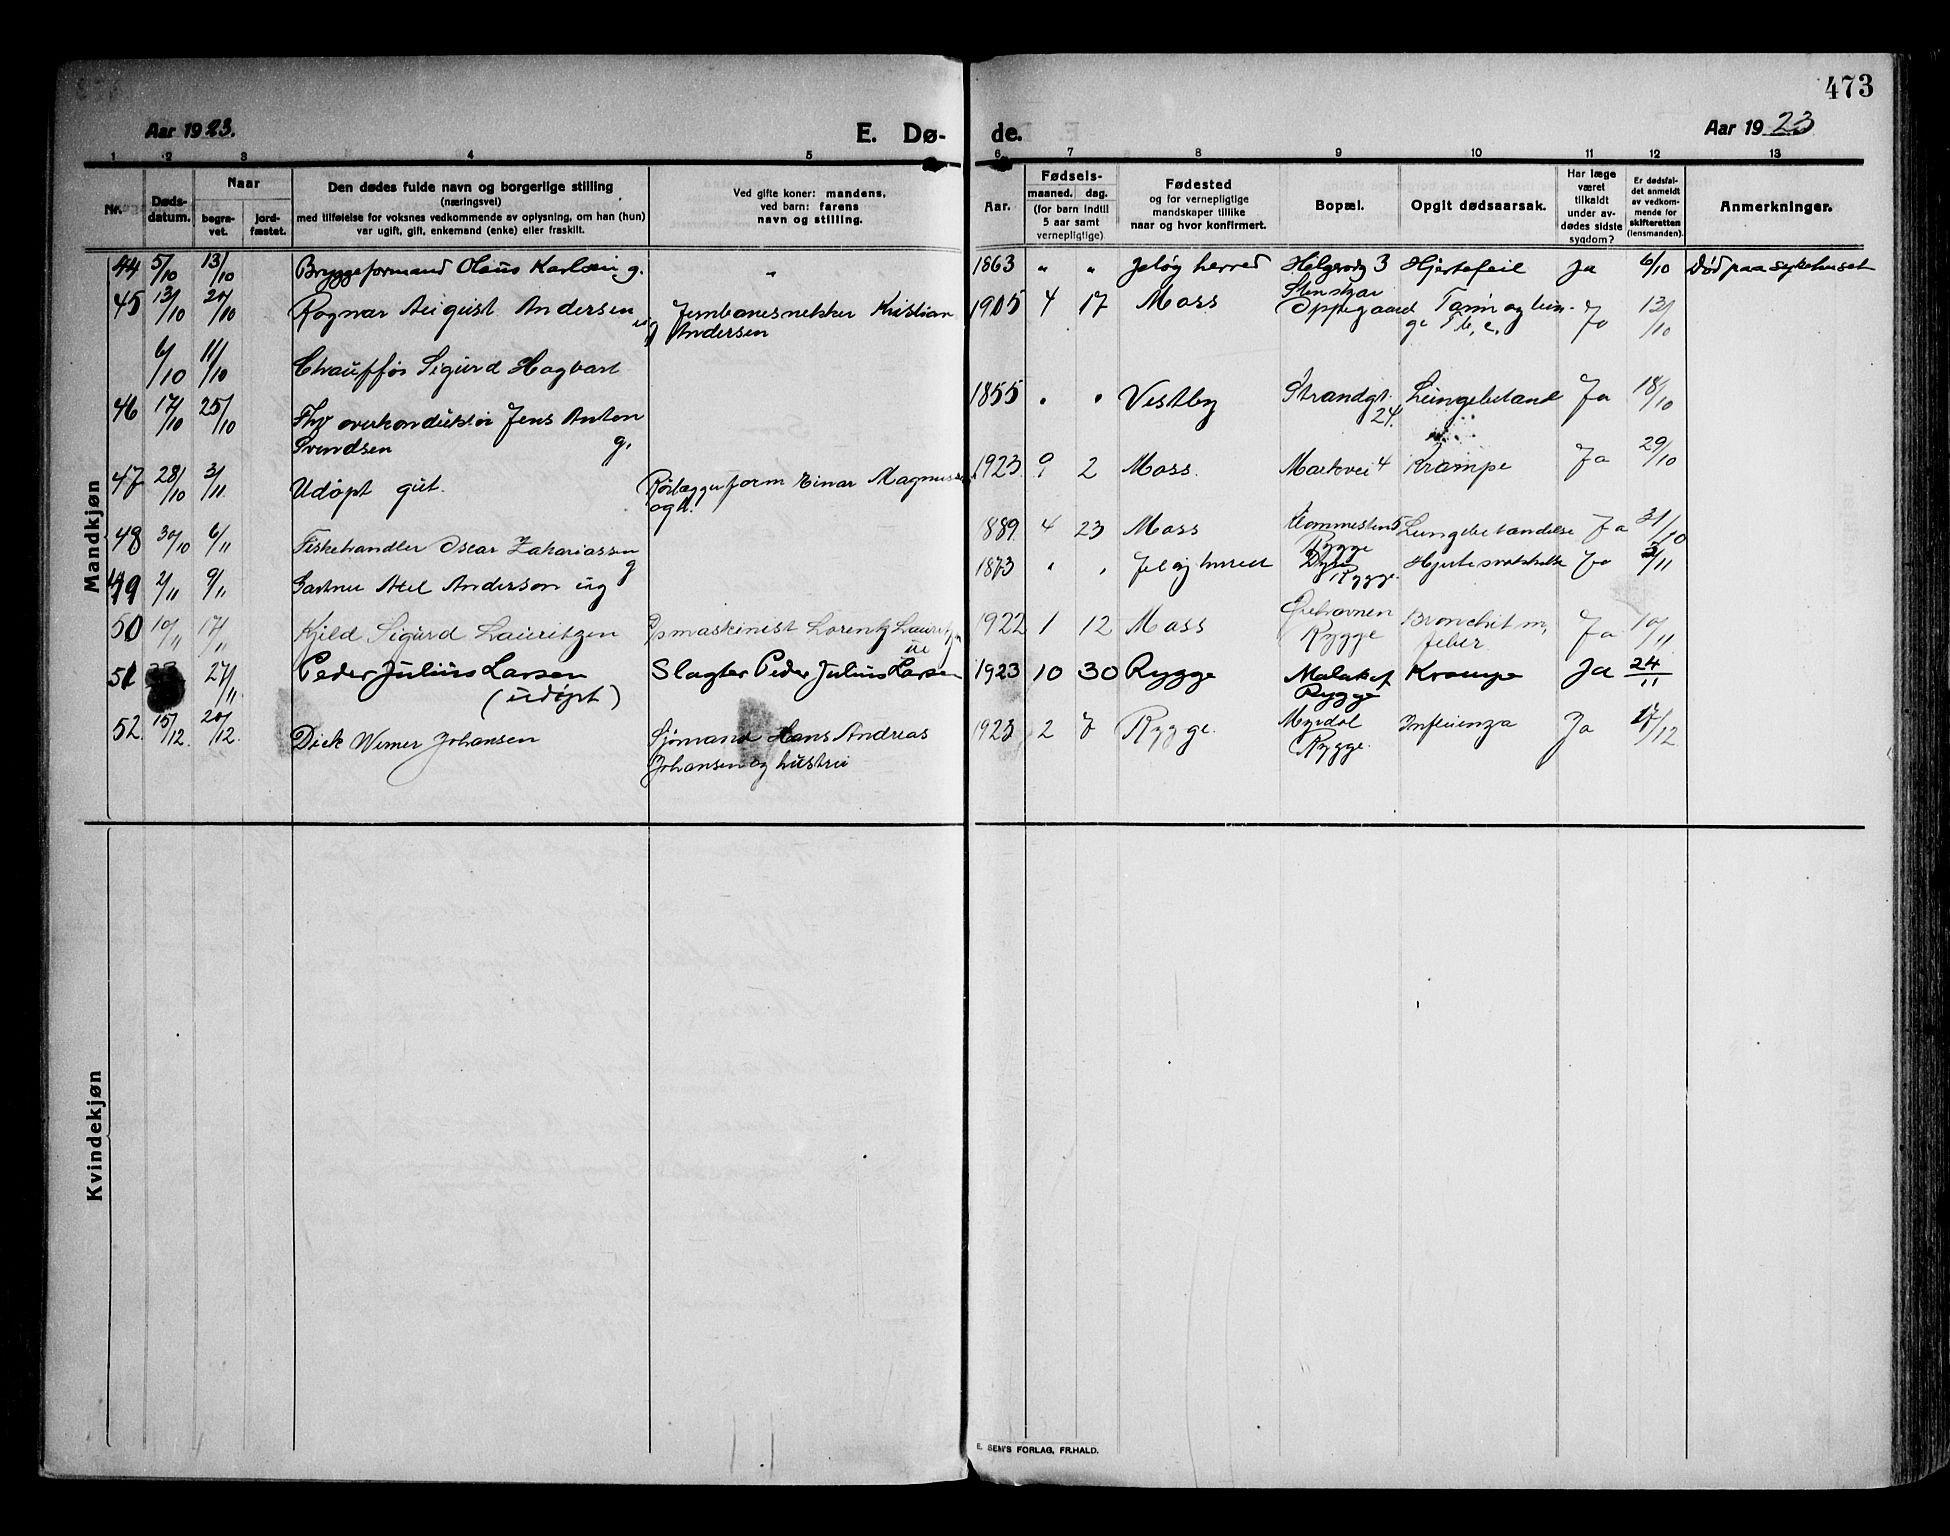 473
Aar 1923.
E. Dø-
de.
Aar 1923
1 2 3 4 5 6 7 8 9 10 11 12 13
Nr.
Døds-
datum.
Naar
begra-
vet.
jord-
fæstet.
Den dødes fulde navn og borgerlige stilling
(næringsvei)
med tilføielse for voksnes vedkommende av oplysning, om han (hun)
var ugift, gift, enkemand (enke) eller fraskilt.
Ved gifte koner: mandens,
ved barn: farens
navn og stilling.
Aar.
Fødsels-
maaned. dag.
(for barn indtil
5 aar samt
vernepligtige)
Fødested
og for vernepligtige
mandskaper tillike
naar og hvor konfirmert.
Bopæl.
Opgit dødsaarsak.
Har læge
været
tilkaldt
under av-
dødes sidste
sygdom?
Er dødsfal-
det anmeldt
av vedkom-
mende for
skifteretten
(lensmanden).
Anmerkninger.
Mandkjøn
44 5/10 13/10 Bryggeformand Olaus Karlsen g. " 1863 " " Jeløy herred Helgerødg 3 Hjertefeil Ja 6/10 Død paa sykehuset
45 13/10 20/10 Ragnar August Andersen ug Jernbanesnekker Kristian
Andersen 1905 4 17 Moss Stenskar
Oppegaard Tarm og lun-
ge Tb.c. Ja 13/10
6/10 11/10 Chauffør Sigurd Hagbart
46 17/10 25/10 Fhv overkonduktør Jens Anton
Svendsen g. 1855 " " Vestby Strandgt.
24. Lungebetænd Ja 18/10
47 28/10 3/11 Udøpt gut. Rørlæggerform Einar Magnussen
og h. 1923 9 2 Moss. Markvei 4 Krampe Ja 29/10
48 30/10 6/11 Fiskehandler Oscar Zakariassen
g 1889 4 23 Moss Klommesten 5
Rygge Lungebetændelse Ja 31/10
49 2/11 9/11 Gartner Axel Anderson ug 1873 " " Jeløy herred Dyre
Rygge. Hjertesvakhet Ja 3/11
50 10/11 17/11 Kjeld Sigurd Lauritzen maskinist Lorentz Lauritzen 1922 1 12 Moss Ørehavnen
Rygge Bronchit m,
feber. Ja 10/11
51 27/11 Peder Julius Larsen
(udøpt) Slagter Peder Julius Larsen 1923 10 30 Rygge Malakof
Rygge Krampe Ja 24/11
52. 15/12. 20/12. Dick Werner Johansen Sjømand Hans Andreas
Johansen og hustru 1923 2 7 Rygge. Myrdal
Rygge. Influenza Ja 17/12
Kvindekjøn
E. SEM'S FORLAG, FR.HALD.